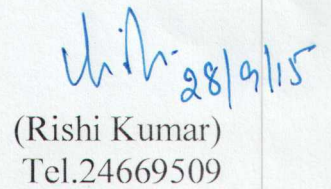 Rishi 28/9/15
(Rishi Kumar)
Tel.24669509